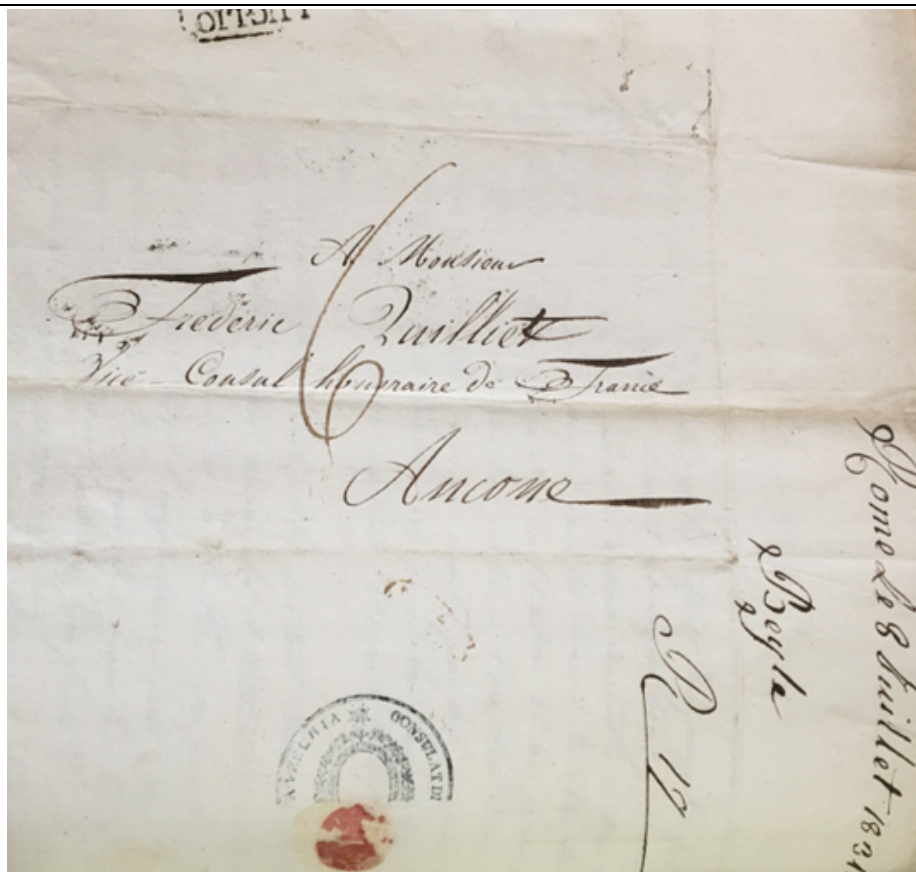 LUGLIO
A Monsieur
Frederic Quilliet
Vice Consul honoraire de France
Ancone
6
Rome Le 8 Juillet 1831
Beyle
R 12
CONSULAT DE
A-VECCHIA